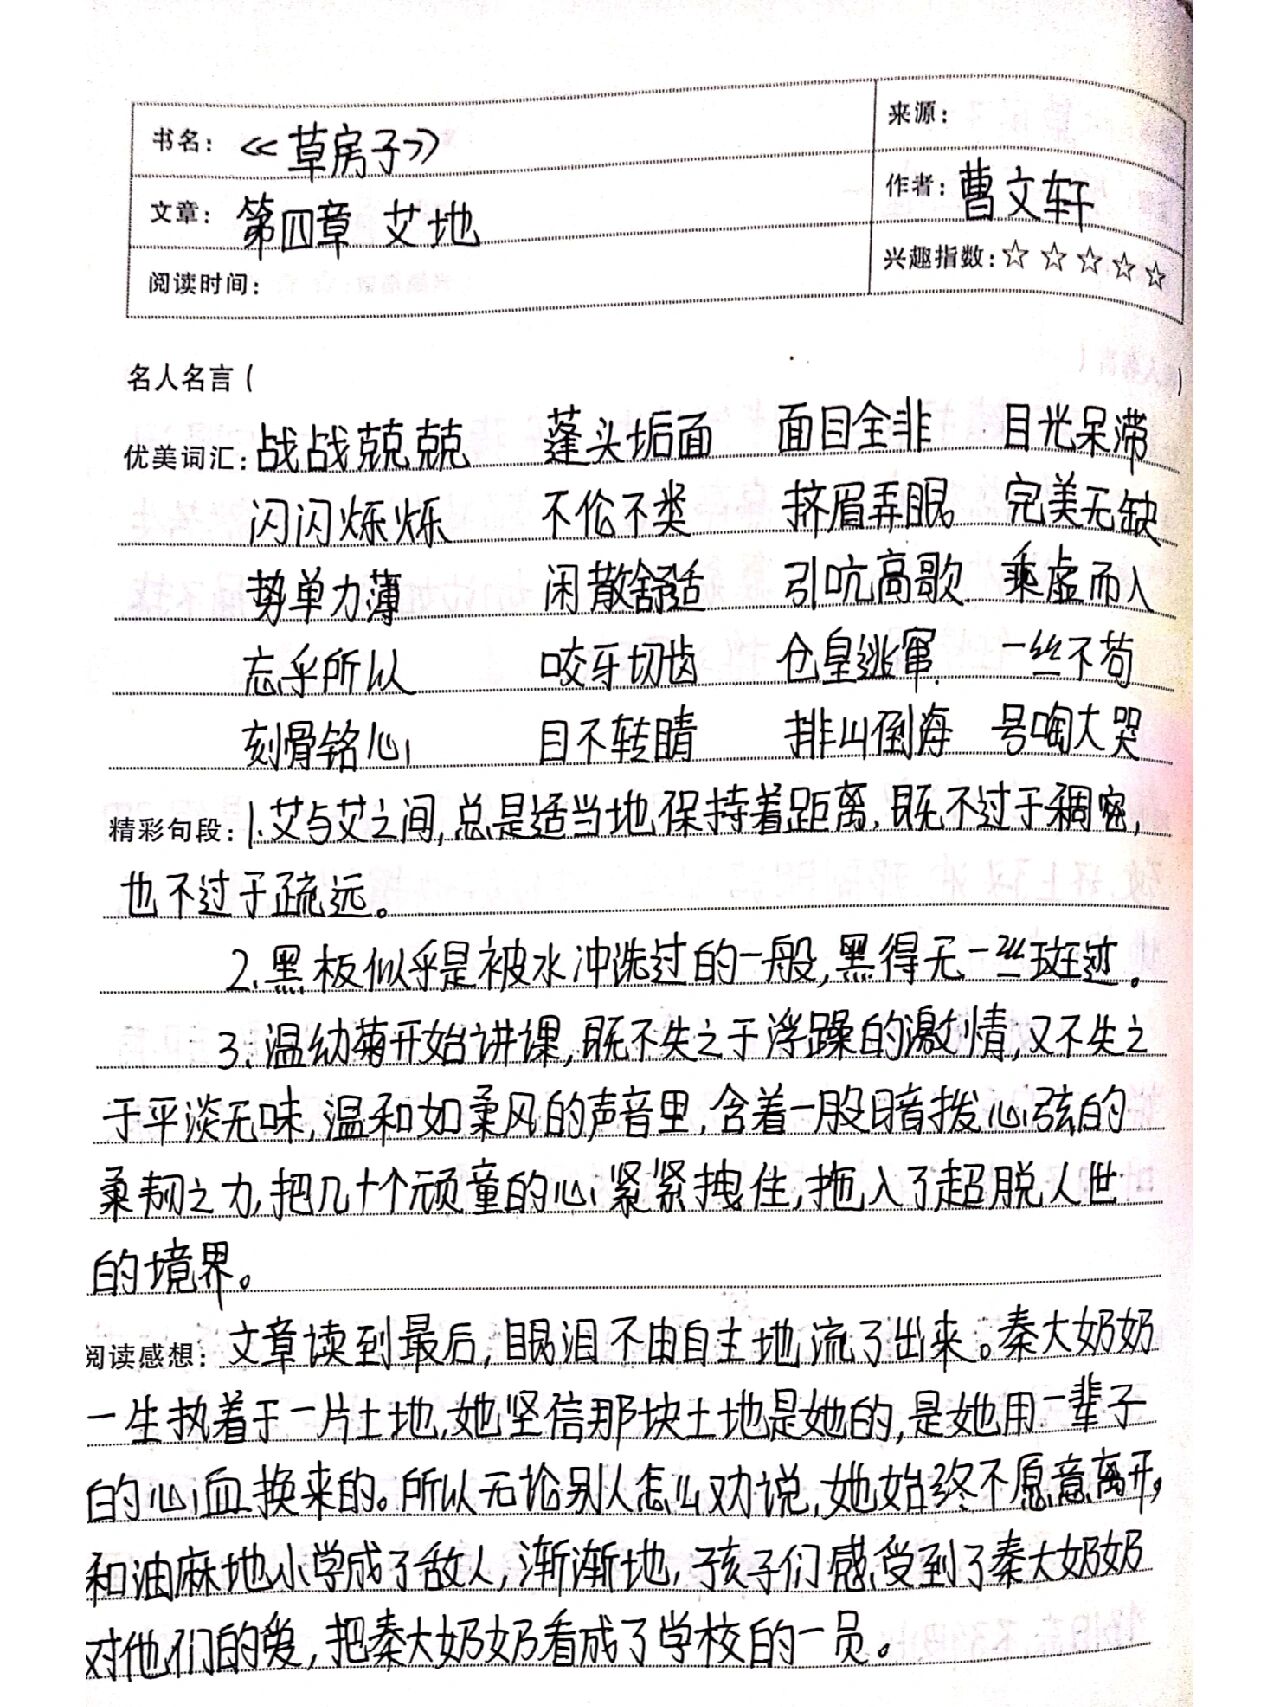 书名：《草房子》
来源：
文章：第四章 艾地
作者：曹文轩
阅读时间：
兴趣指数：☆☆☆☆☆
名人名言（ ）
优美词汇：战战兢兢 蓬头垢面 面目全非 目光呆滞
闪闪烁烁 不伦不类 挤眉弄眼 完美无缺
势单力薄 闲散舒适 引吭高歌 乘虚而入
忘乎所以 咬牙切齿 仓皇逃窜 一丝不苟
刻骨铭心 目不转睛 排山倒海 号啕大哭
精彩句段：1.艾与艾之间，总是适当地保持着距离，既不过于稠密，
也不过于疏远。
2.黑板似乎是被水冲洗过的一般，黑得无一丝斑迹。
3.温幼菊开始讲课，既不失之于浮躁的激情，又不失之
于平淡无味，温和如柔风的声音里，含着一股暗拨心弦的
柔韧之力，把几十个顽童的心紧紧拽住，拖入了超脱人世
的境界。
阅读感想：文章读到最后，眼泪不由自主地流了出来。秦大奶奶
一生执着于一片土地，她坚信那块土地是她的，是她用一辈子
的心血换来的。所以无论别人怎么劝说，她始终不愿意离开，
和油麻地小学成了敌人，渐渐地，孩子们感受到了秦大奶奶
对他们的爱，把秦大奶奶看成了学校的一员。